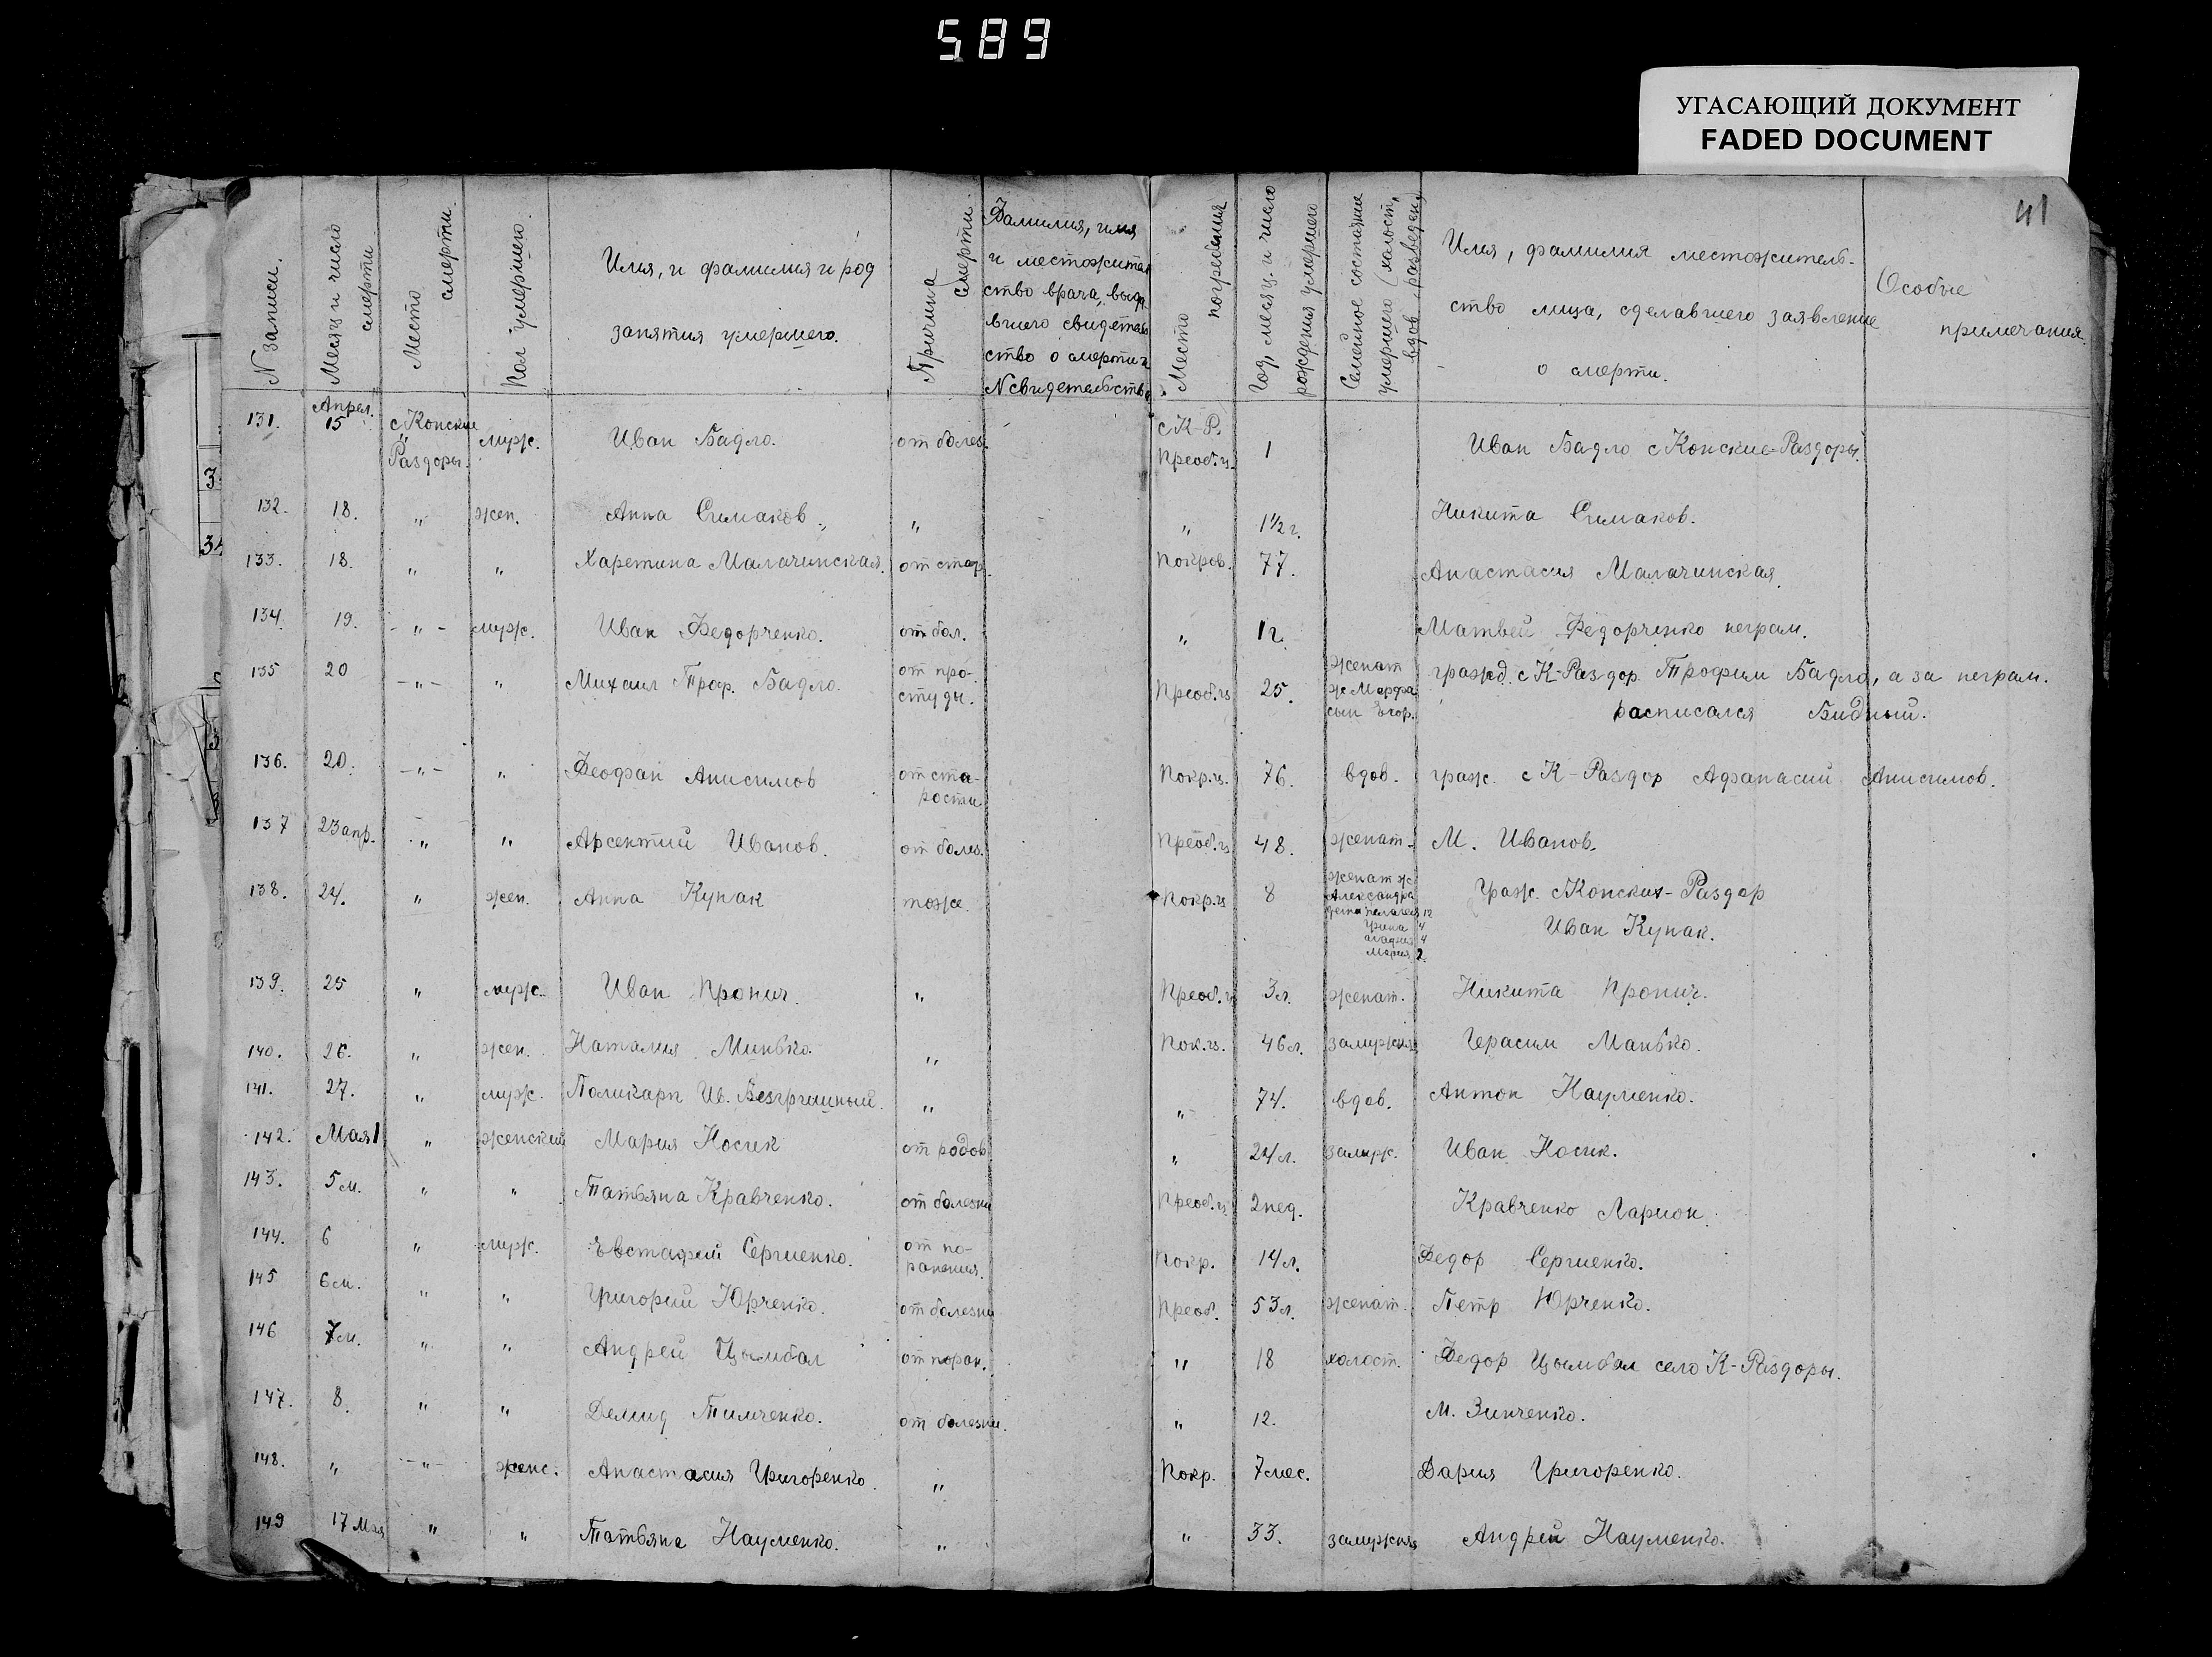 589
УГАСАЮЩИЙ ДОКУМЕНТ
FADED DOCUMENT
41
N записи.
Месяц и число смерти
Место смерти.
Пол умершего.
Имя, и фамилия и род
занятия умершего.
Причина смерти.
Фамилия, имя
и местожитель
ство врача, выда
вшего свидетель
ство о смерти и
N свидетельства
Место погребения
Год, месяц и число рождения умершего
Семейное состояние умершего (холост, вдов, разведен)
Имя, фамилия местожитель-
ство лица, сделавшего заявление
о смерти.
Особые
примечания.
131. Апрел. 15 с Конские Раздоры. муж. Иван Бадло. от болез. с К-Р. Преоб.ц. 1 Иван Бадло с Конские-Раздоры.
132. 18. " жен. Анна Симаков. " " 1½ г. Никита Симаков.
133. 18. " " Харетина Малачинская. от стар. Покров. 77. Анастасия Малачинская.
134. 19. -"- муж. Иван Федорченко. от бол. " 1 г. Матвей Федорченко неграм.
135 20 -"- " Михаил Троф. Бадло. от про-
студы. Преоб.ц 25. женат
ж Марфа
сын Егор. гражд. с К-Раздор. Трофим Бадло, а за неграм.
расписался Бидный.
136. 20. -"- " Феофан Анисимов от ста-
рости Покр.ц. 76. вдов. граж. с К-Раздор Афанасий Анисимов.
137 23 апр. " " Арсентий Иванов. от болез. Преоб.ц 48. женат. М. Иванов.
138. 24. " жен. Анна Купак тоже. Покр.ц 8 женат ж.
Александра
дети Пелагея 12
4
агафия 4
Мария 2. Граж. с Конских-Раздор
Иван Купак.
139. 25 " муж. Иван Пронич. " Преоб.ц 3 л. женат. Никита Пронич.
140. 26. " жен. Наталия Минько. " Пок.ц. 46 л. замужняя Герасим Манько.
141. 27. " муж. Поликарп Ив. Безгришный. " " 74. вдов. Антон Науменко.
142. Мая 1 " женский Мария Носик от родов " 24 л. замуж. Иван Носик.
143. 5 м. " " Татьяна Кравченко. от болезни Преоб.ц. 2 нед. Кравченко Ларион.
144. 6 " муж. Евстафий Сергиенко. от по-
ранения. Покр. 14 л. Федор Сергиенко.
145 6 м. " " Григорий Юрченко. от болезни Преоб. 53 л. женат. Петр Юрченко.
146 7 м. " " Андрей Цымбал от поран. " 18 холост. Федор Цымбал село К-Раздоры.
147. 8. " " Демид Тимченко. от болезни. " 12. М. Зинченко.
148. " -"- женс. Анастасия Григоренко. " Покр. 7 мес. Дария Григоренко.
149 17 Мая " " Татьяна Науменко. " " 33. замужняя Андрей Науменко.